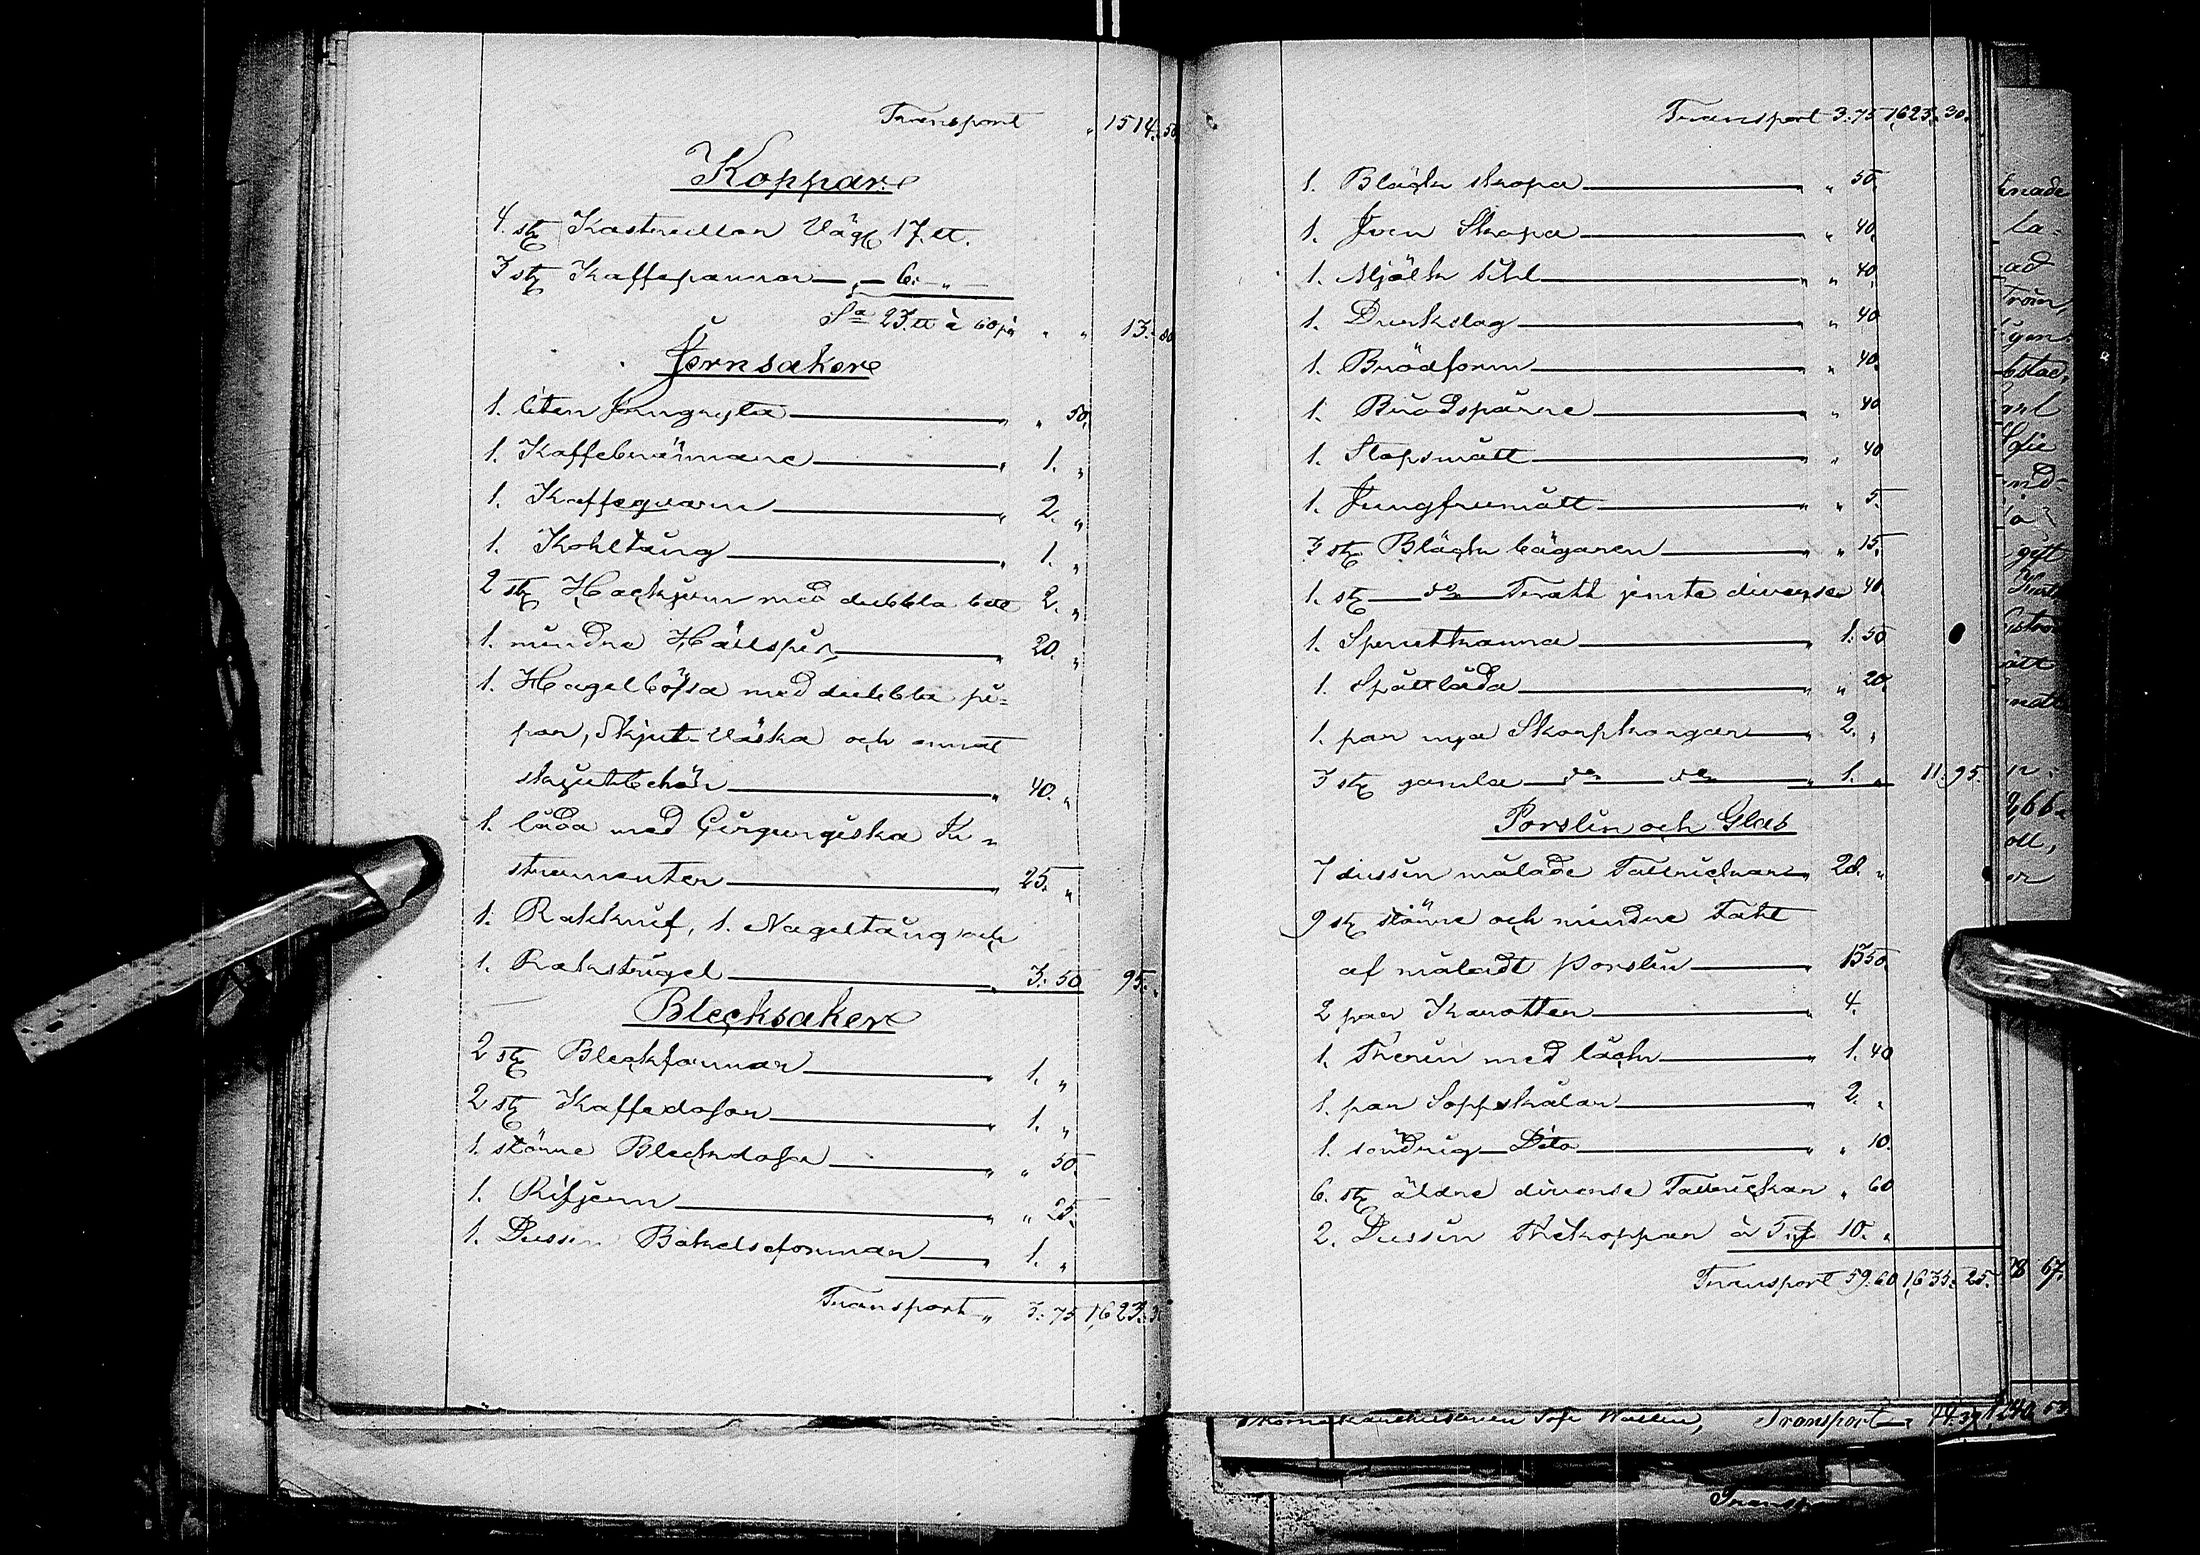 Transport " 1514. 50
Koppar
4. st. Kastruller Väg. 17. ℔.
3 st. Kaffepannor — " — 6. — " —
Sa 23. ℔ à 60 pi " " 13. 80
Jernsaker
1. liten Jerngryta " " 50.
1. Kaffebrännare " 1. "
1. Kaffeqvarn " 2. "
1. Kohltång " 1. "
2 st. Hackjern med dubbla bett 2. "
1. mindre Hällspis " 20. "
1. Hagelbössa med dubbla pi-
por, Skjut-Väska och annat
skjuttbehör " 40. "
1. låda med Çirgurgiska In-
strumenter " 25. "
1. Rakknif, 1. Nageltång och
1. Rakstrigel " 3. 50 95. "
Blecksaker
2 st. Bleckformar " 1. "
2 st. Kaffedosor " 1. "
1. större Bleckdosa " " 50.
1. Rifjern " " 25.
1. Dussin Bakelseformar " 1. "
Transport " 3. 75 1,623. 3
Transport 3. 75 1,623. 30.
1. Bläck skopa " " 50.
1. Jern Skopa " " 40.
1. Mjölk sihl " " 40.
1. Durkslag " " 40
1. Brödform " " 40.
1. Brödspåne " 40
1. Stopsmått " 40
1. Jungfrumått " " 5.
3 st. Bläck bägaren " " 15.
1. st. — do — Tratt jemte diverse 40.
1. Sprutkanna " 1. 50
1. Spottlåda " " 20.
1. par nya Skorpkorgar 2. "
3 st. gamla — do — do " 1. " 11. 95.
Porslin och Glas
7 dussin målade Tallrickar " 28. "
9 st. större och mindre Fatt
af måladt Porslin " 13 50.
2 par Karotter " 4.
1. Therin med läck " 1. 40
1. par Soppskålar " 2. "
1. söndrig — Dito " " 10.
6. st. äldre diverse Tallrickar " 60
2. Dussin Thekoppar à 5. 10. "
Transport 59. 60 1,635. 25.
78 67.
Transport 1240 53